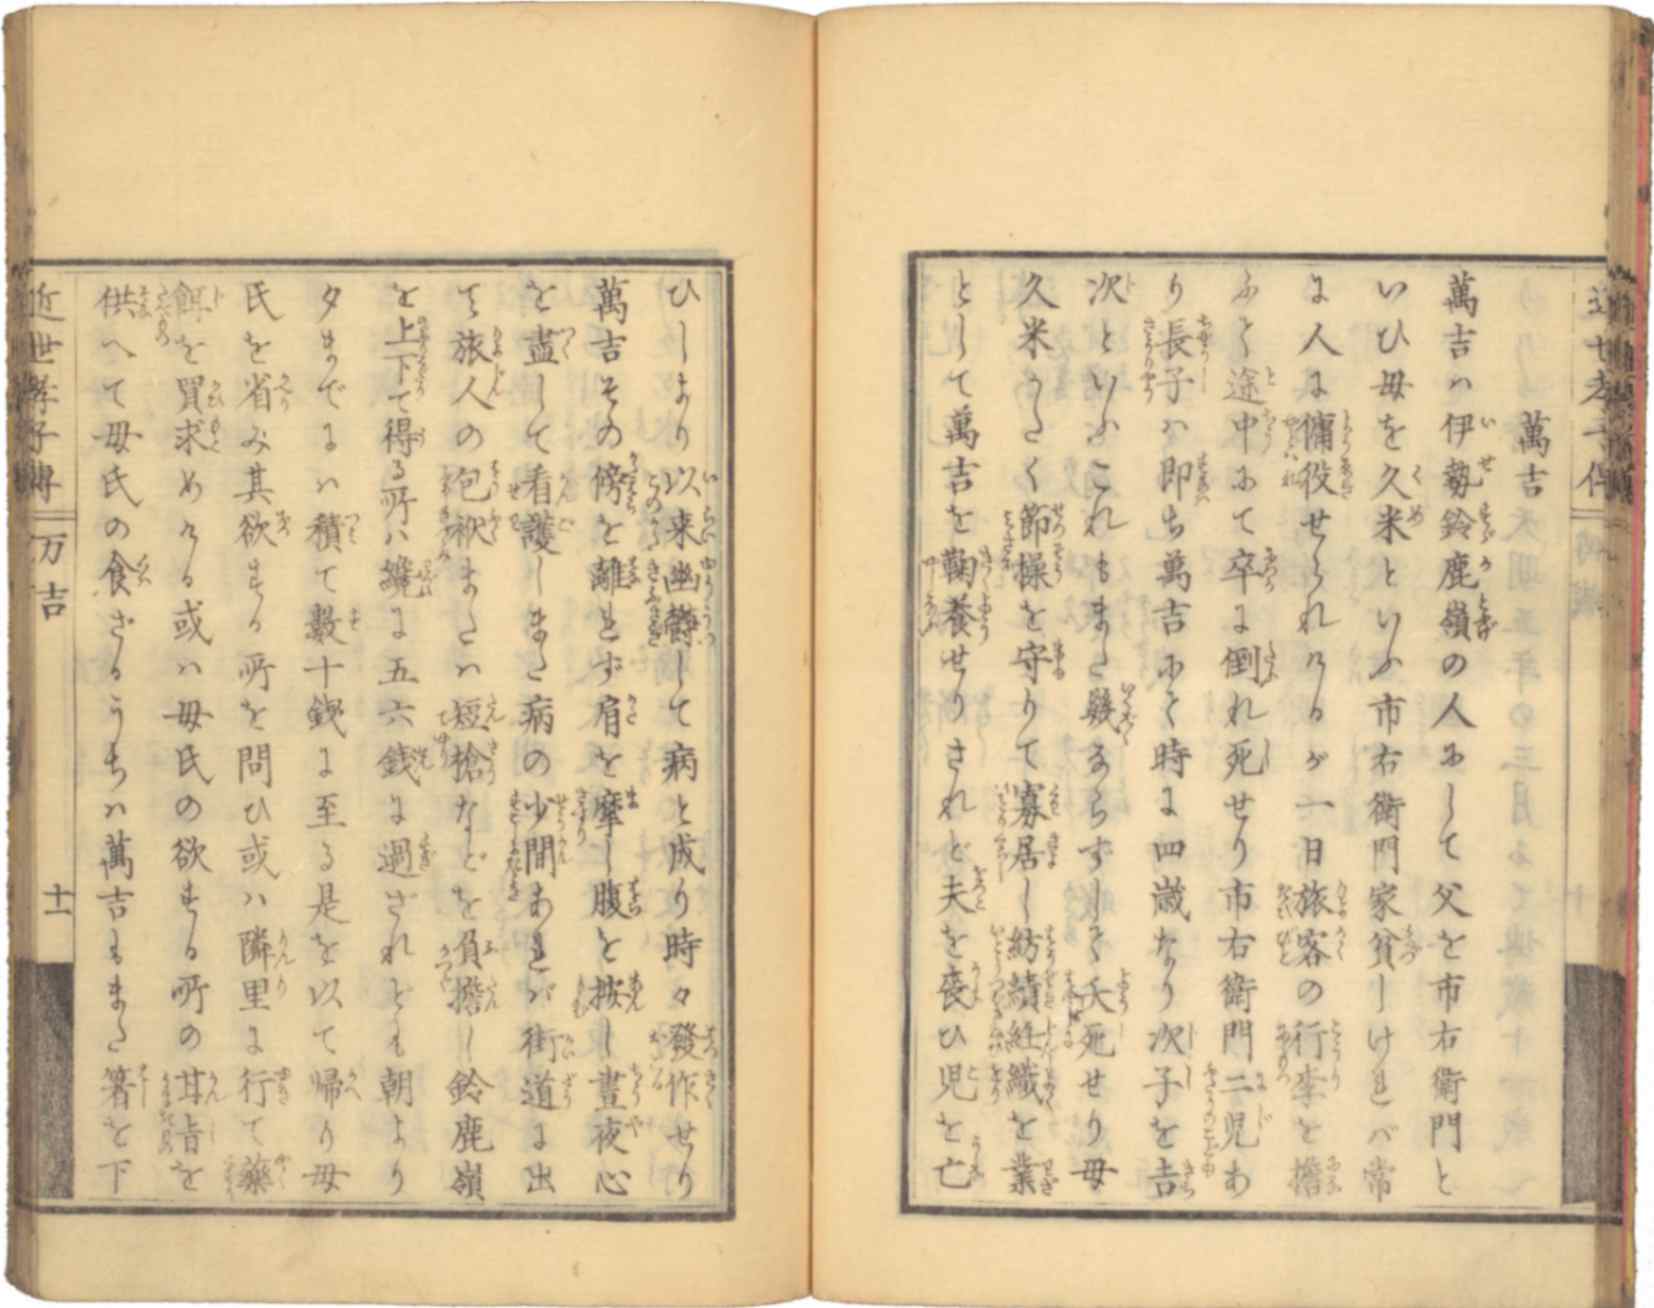 萬吉
萬吉ハ伊勢鈴鹿嶺の人にして父を市右衛門と
いひ母を久米といふ市右衛門家貧しければ常
に人に傭役せられけるが一日旅客の行李を擔
ふて途中にて卒に倒れ死せり市右衛門二児あ
り長子ハ即ち萬吉にて時に四歳なり次子を吉
次といふこれもまた幾ならずして夭死せり母
久米かたく節操を守りて寡居し紡績経織を業
として萬吉を鞠養せりされど夫を喪ひ児を亡
ひしより以来幽鬱して病と成り時々發作せり
萬吉その傍を離れず肩を摩し腹を按し晝夜心
を盡して看護しまた病の少間あれバ街道に出
て旅人の包袱または短槍などを負擔し鈴鹿嶺
を上下て得る所ハ纔に五六銭に過ざれども朝より
夕までにハ積て數十錢に至る是を以て帰り母
氏を省み其欲する所を問ひ或ハ隣里に行て藥
餌を買求めける或ハ母氏の欲する所の甘旨を
供へて母氏の食ざるうちハ萬吉もまた箸を下
近世孝子傳
万吉
十一